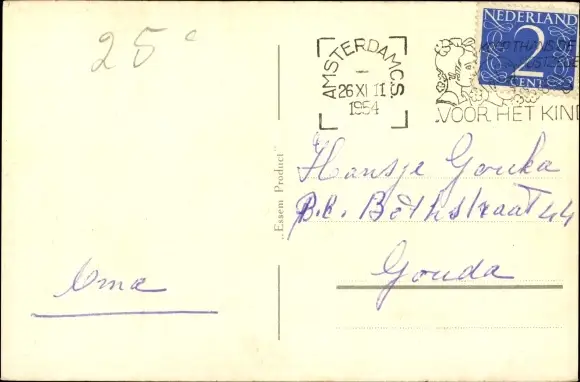 25 c
AMSTERDAM C.S.
26 XI 11
1954
VOOR HET KIND
NEDERLAND
2
CENT
"Essem Product"
Hansje Gouka
Bothstraat 44
Gouda
Oma